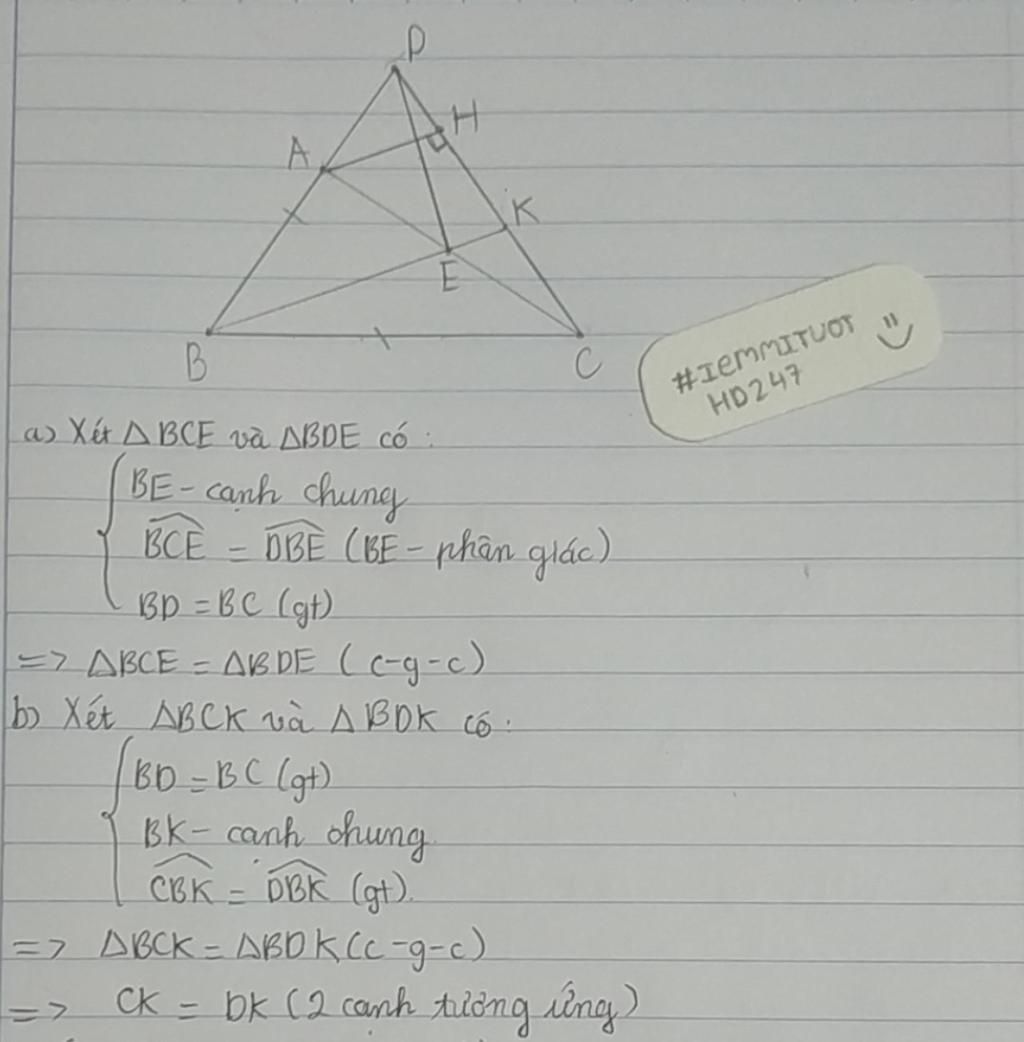 D
H
A
K
E
B
C
#IEMMITUOT
HD247
a) Xét ΔBCE và ΔBDE có :
BE - cạnh chung
BCE = DBE (BE - phân giác)
BD = BC (gt)
=> ΔBCE = ΔBDE (c-g-c)
b) Xét ΔBCK và ΔBDK có :
BD = BC (gt)
BK - cạnh chung
CBK = DBK (gt).
=> ΔBCK = ΔBDK (c-g-c)
=> CK = DK (2 cạnh tương ứng)